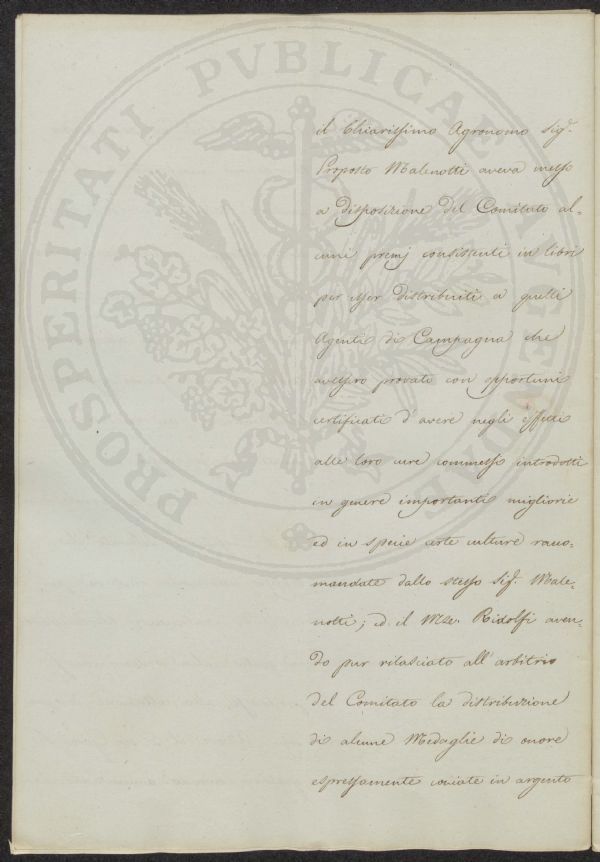 PROSPERITATI PVBLICAE AVGENDAE
il Chiarissimo Agronomo Sig.r
Proposto Malenotti aveva messo
a disposizione del Comitato al-
cuni premj consistenti in libri
per esser distribuiti a quelli
Agenti di Campagna che
avessero provato con opportuni
certificati d'avere negli effetti
alle loro cure commesse introdotti
in genere importanti migliorie
ed in specie certe culture racco-
mandate dallo stesso Sig.r Male-
notti; ed il Mse. Ridolfi aven-
do pur rilasciato all'arbitrio
del Comitato la distribuzione
di alcune Medaglie di onore
espressamente coniate in argento